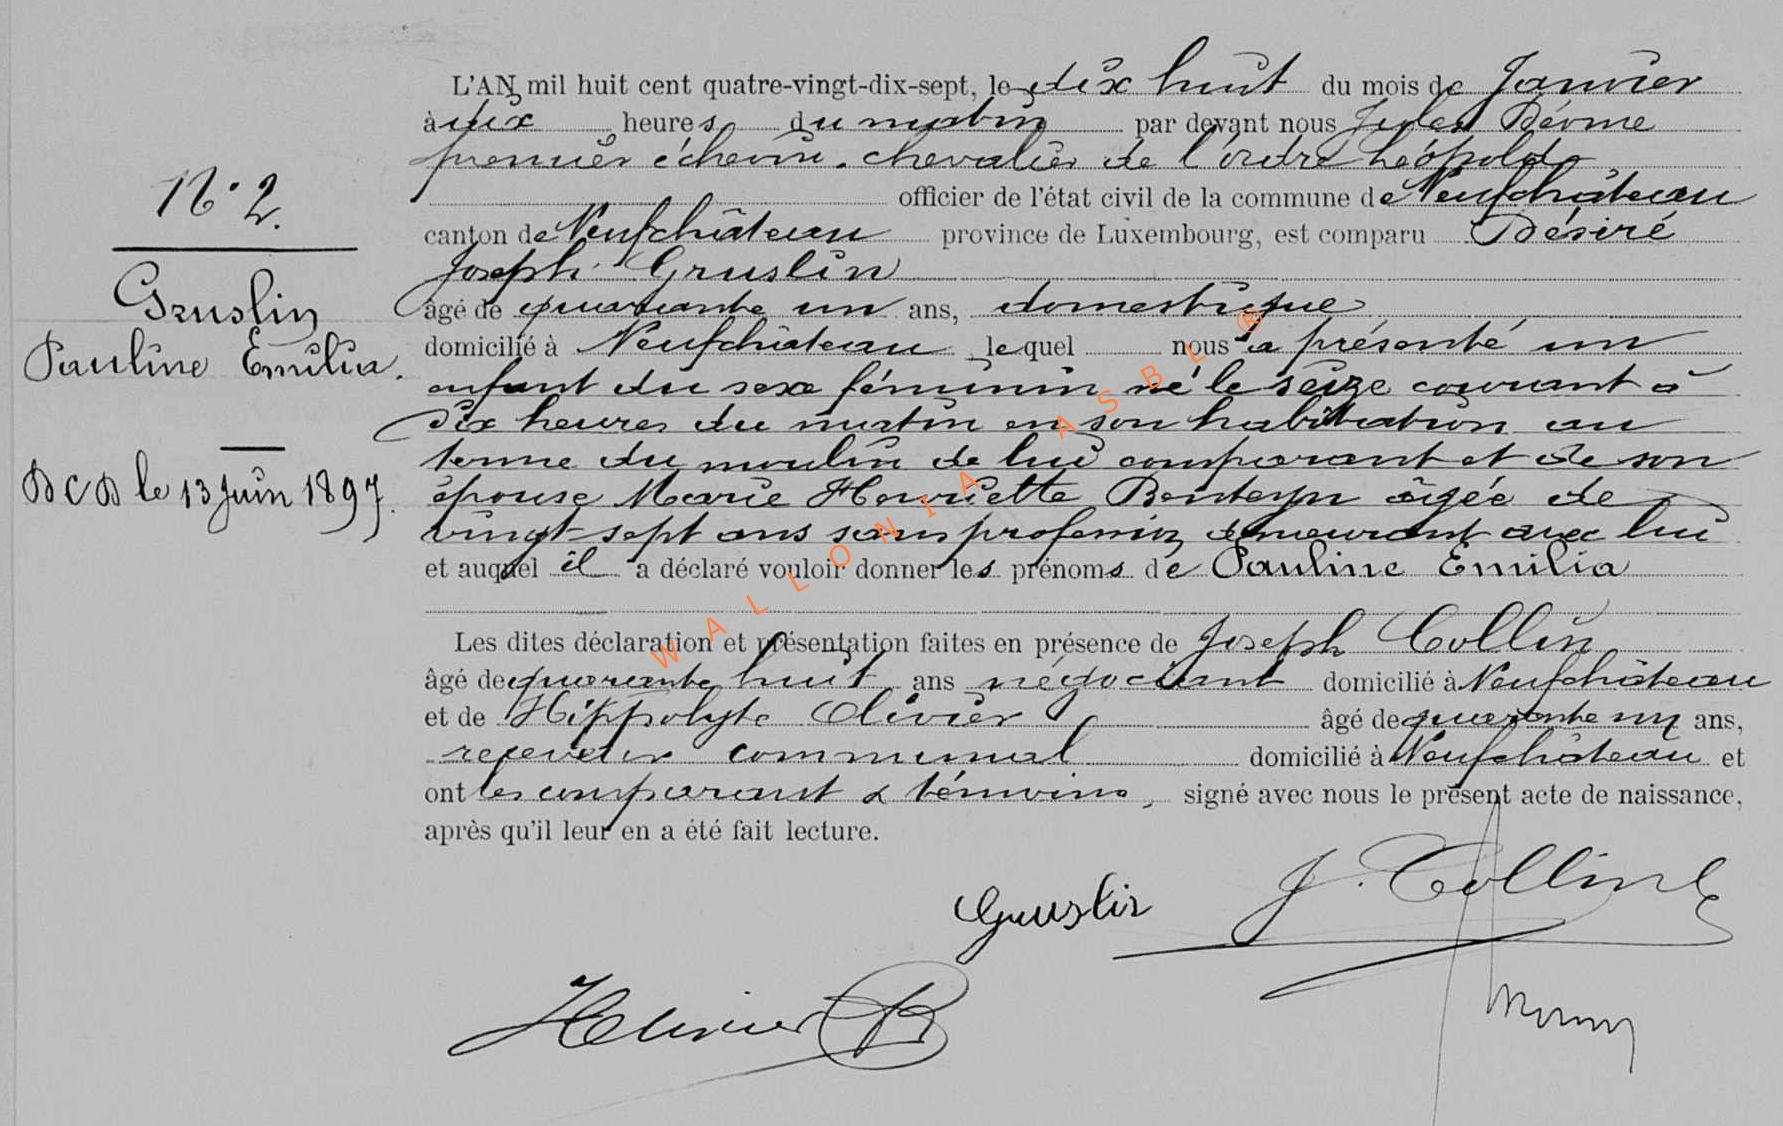 N° 2.
Gruslin
Pauline Emilia.
DCD le 13 Juin 1897.
L'AN mil huit cent quatre-vingt-dix-sept, le dix huit du mois de Janvier
à dix heures du matin par devant nous Jules Dérme
premier échevin, chevalier de l'ordre Léopold
officier de l'état civil de la commune de Neufchâteau
canton de Neufchâteau province de Luxembourg, est comparu Désiré
Joseph Gruslin
âgé de quarante un ans, domestique
domicilié à Neufchâteau lequel nous a présenté un
enfant du sexe féminin né le seize courant à
dix heures du matin en son habitation au
terme du moulin de lui comparant et de son
épouse Marie Henriette Bonteyn âgée de
vingt-sept ans sans profession demeurant avec lui
et auquel il a déclaré vouloir donner les prénoms de Pauline Emilia
Les dites déclaration et présentation faites en présence de Joseph Collin
âgé de quarante huit ans négociant domicilié à Neufchâteau
et de Hippolyte Olivier âgé de quarante un ans,
receveur communal domicilié à Neufchâteau et
ont les comparant & témoins, signé avec nous le présent acte de naissance,
après qu'il leur en a été fait lecture.
Gruslin
J. Collin
HOlivier
WALLONIA ASBL ®